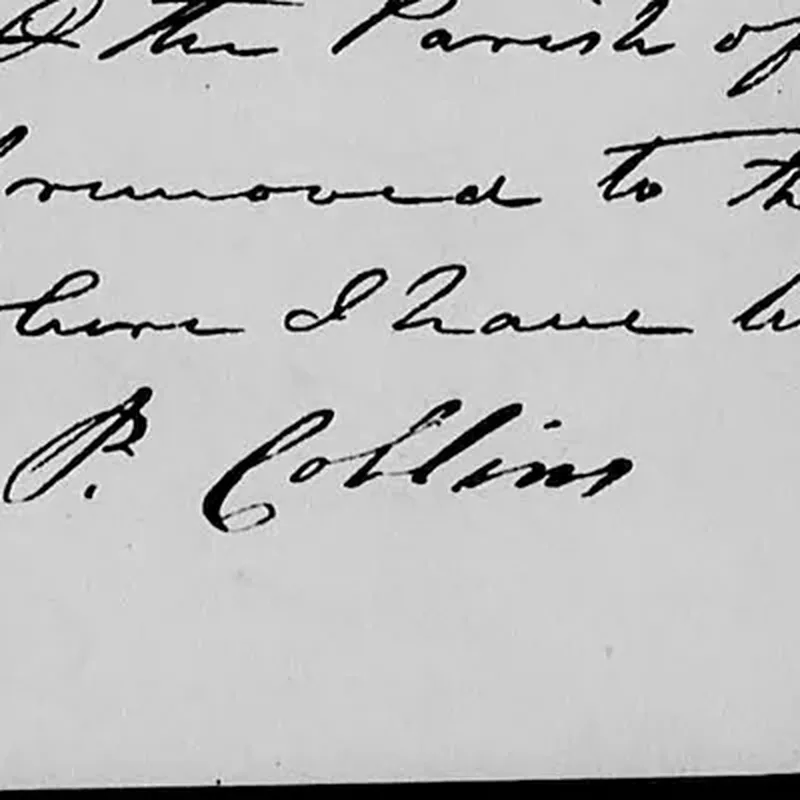 the Parish of
removed to th
here I have
P. Collins